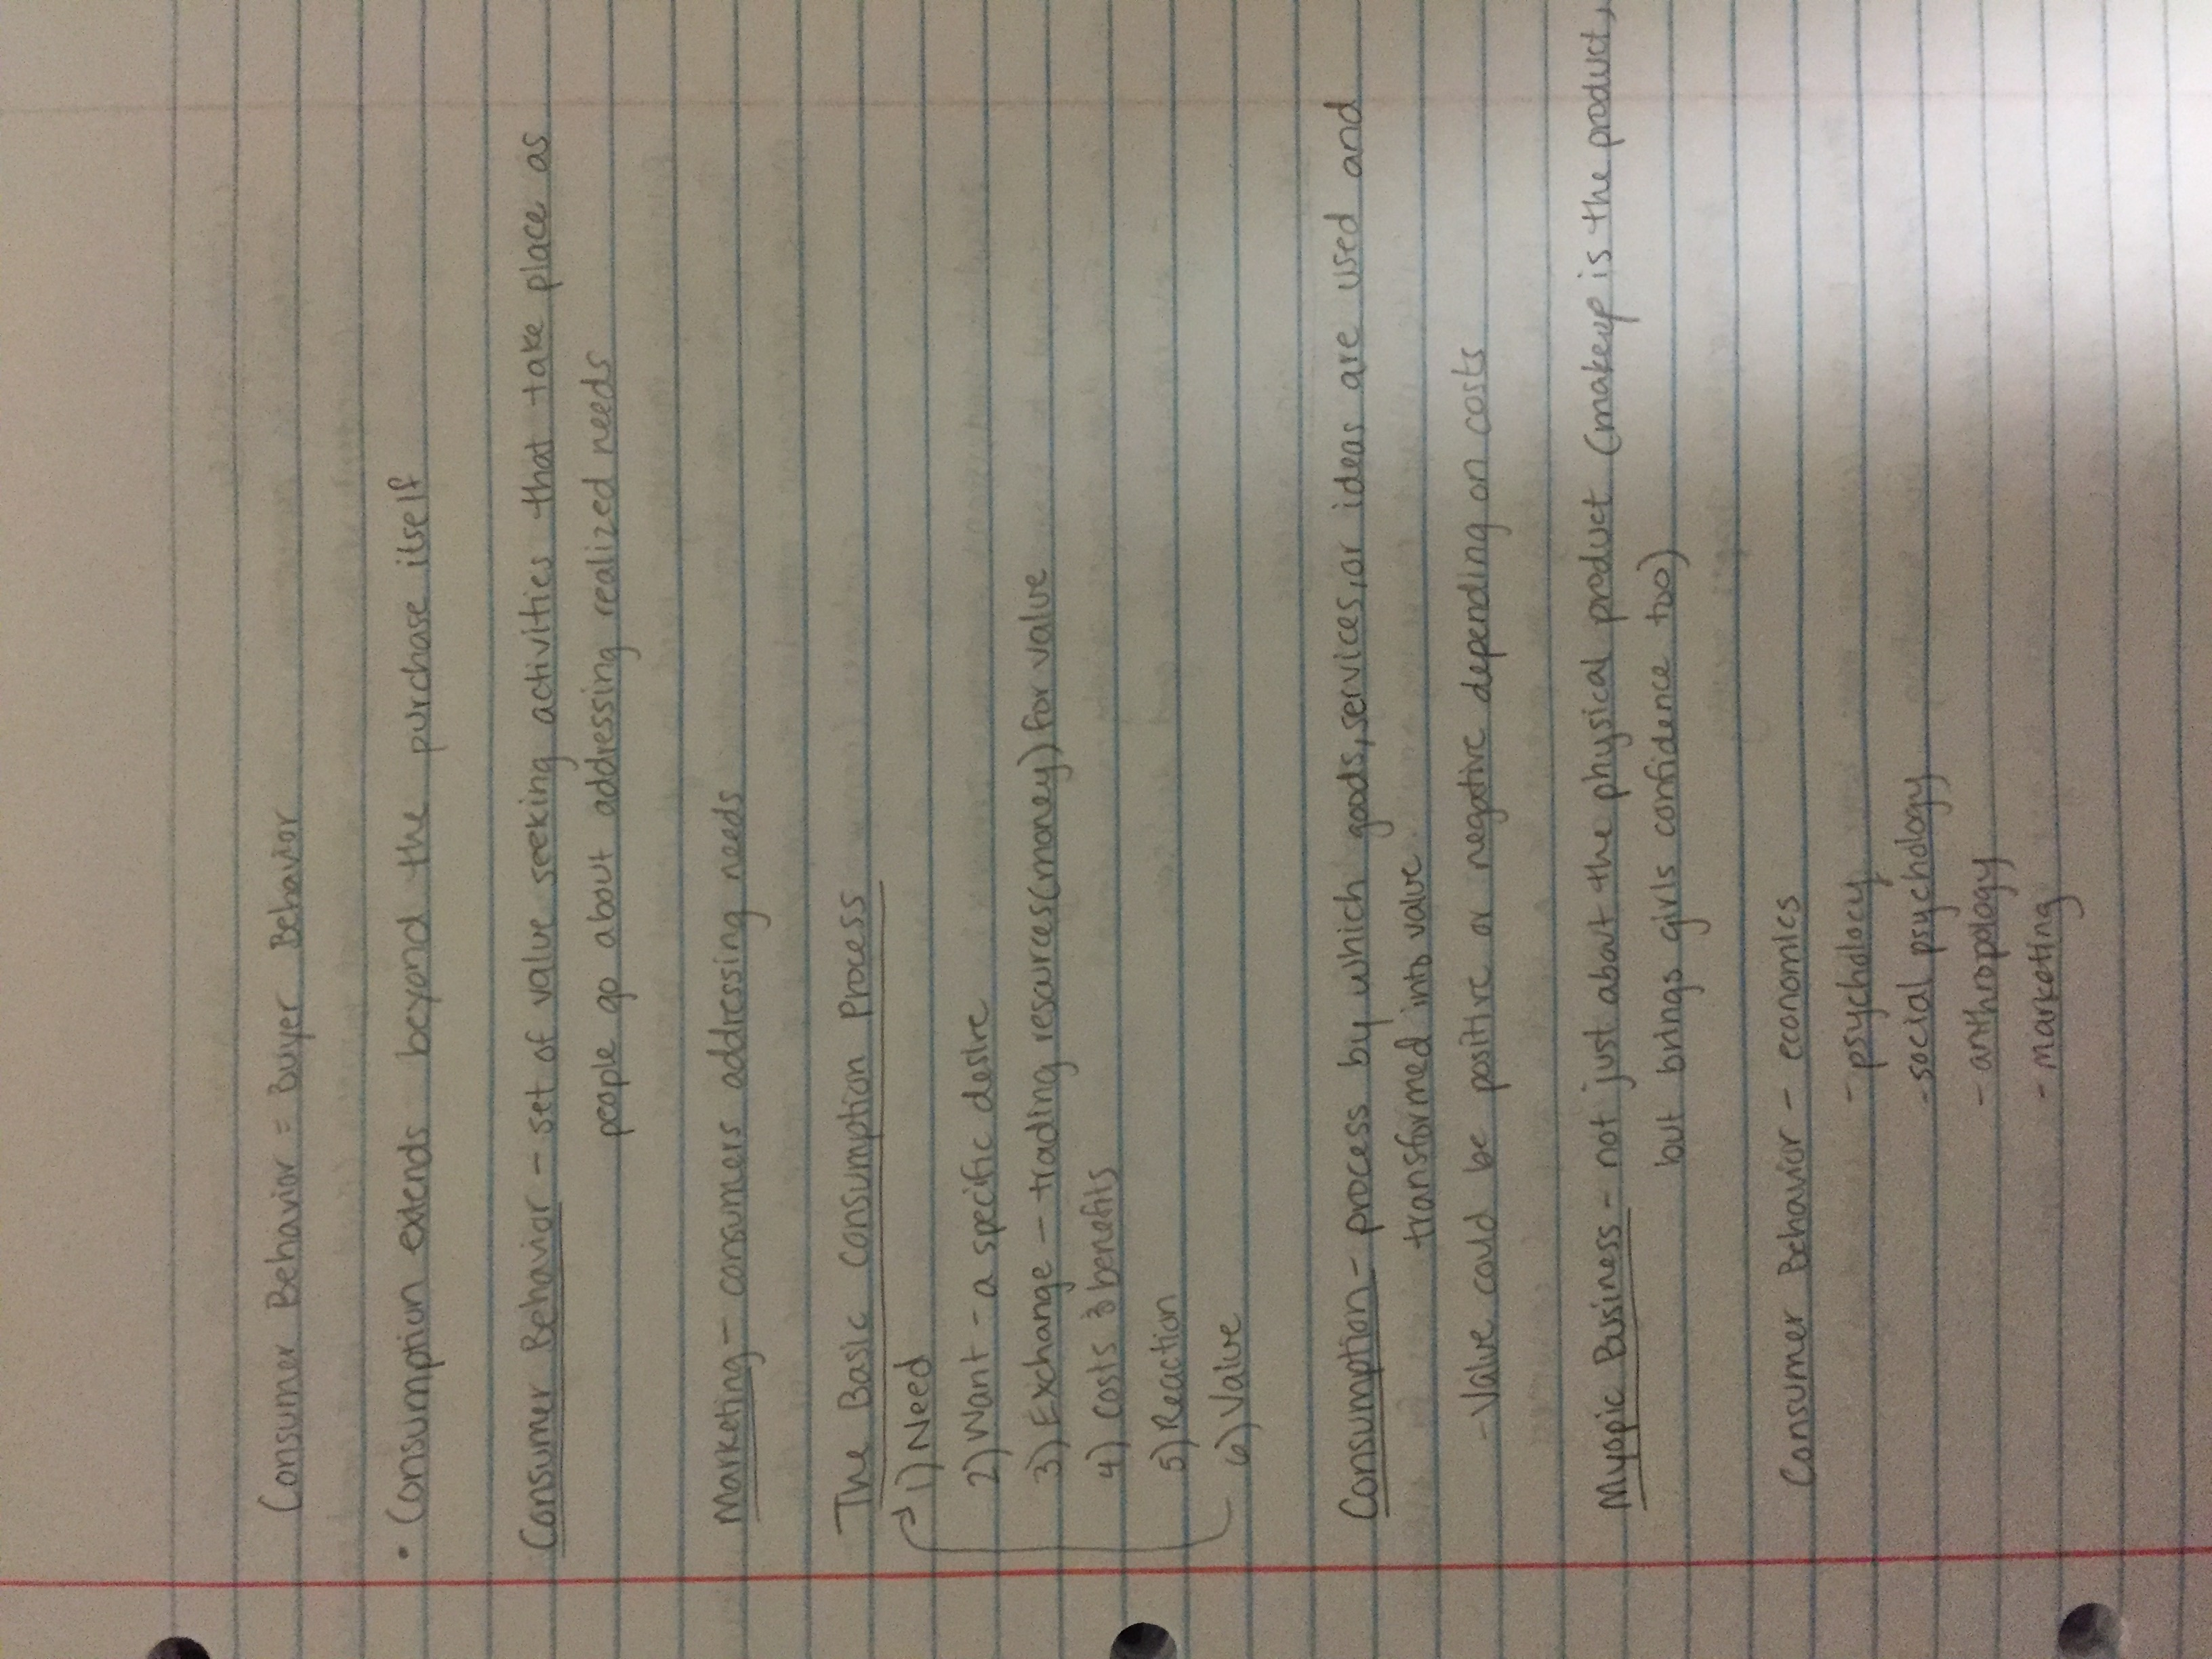 Consumer Behavior = Buyer Behavior
• Consumption extends beyond the purchase itself
Consumer Behavior - set of value seeking activities that take place as
people go about addressing realized needs
Marketing - consumers addressing needs
The Basic Consumption Process
1) Need
2) Want - a specific desire
3) Exchange - trading resources (money) for value
4) Costs & benefits
5) Reaction
6) Value
Consumption - process by which goods, services, or ideas are used and
transformed into value
- Value could be positive or negative depending on costs
Myopic Business - not just about the physical product (makeup is the product,
but brings girls confidence too)
Consumer Behavior - economics
- psychology
- social psychology
- anthropology
- marketing